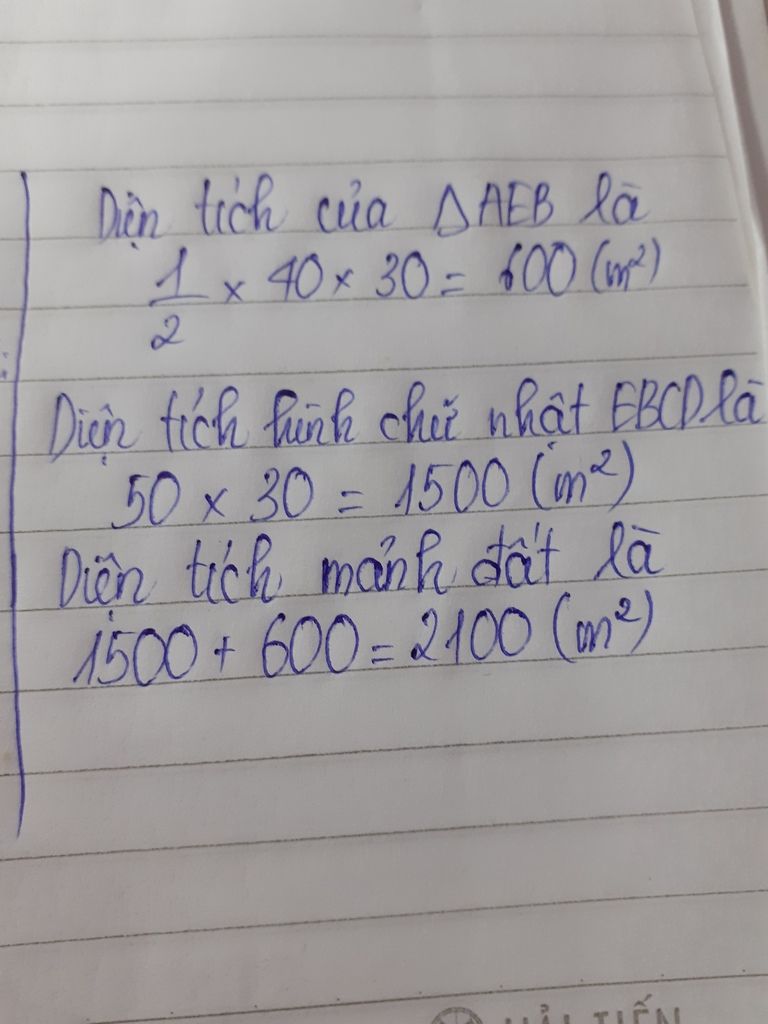 Diện tích của ΔAEB là
1/2 × 40 × 30 = 600 (m²)
Diện tích hình chữ nhật EBCD là
50 × 30 = 1500 (m²)
Diện tích mảnh đất là
1500 + 600 = 2100 (m²)
HẢI TIẾN